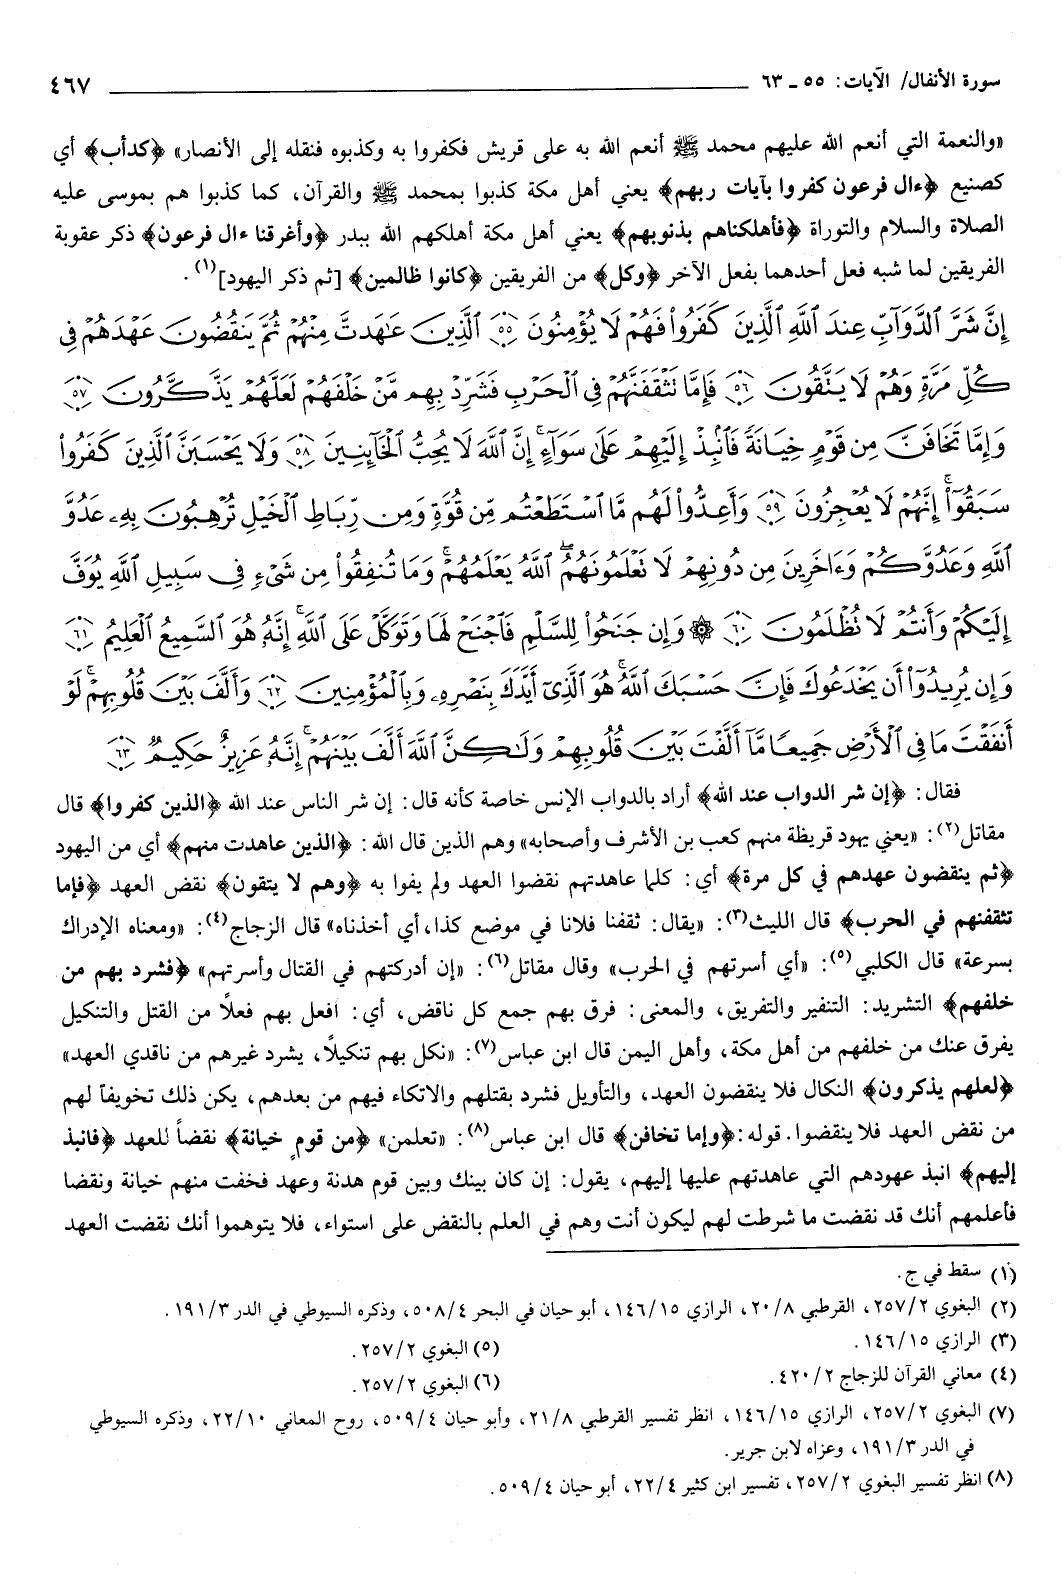 سورة الأنفال/ الآيات: ٥٥ ـ ٦٣ ٤٦٧
«والنعمة التي أنعم الله عليهم محمد ﷺ أنعم الله به على قريش فكفروا به وكذبوه فنقله إلى الأنصار» ﴿كدأب﴾ أي
كصنيع ﴿ءال فرعون كفروا بآيات ربهم﴾ يعني أهل مكة كذبوا بمحمد ﷺ والقرآن، كما كذبوا هم بموسى عليه
الصلاة والسلام والتوراة ﴿فأهلكناهم بذنوبهم﴾ يعني أهل مكة أهلكهم الله ببدر ﴿وأغرقنا ءال فرعون﴾ ذكر عقوبة
الفريقين لما شبه فعل أحدهما بفعل الآخر ﴿وكل﴾ من الفريقين ﴿كانوا ظالمين﴾ [ثم ذكر اليهود](١).
إِنَّ شَرَّ ٱلدَّوَآبِّ عِندَ ٱللَّهِ ٱلَّذِينَ كَفَرُوا۟ فَهُمْ لَا يُؤْمِنُونَ ٥٥ ٱلَّذِينَ عَـٰهَدتَّ مِنْهُمْ ثُمَّ يَنقُضُونَ عَهْدَهُمْ فِى
كُلِّ مَرَّةٍ وَهُمْ لَا يَتَّقُونَ ٥٦ فَإِمَّا تَثْقَفَنَّهُمْ فِى ٱلْحَرْبِ فَشَرِّدْ بِهِم مَّنْ خَلْفَهُمْ لَعَلَّهُمْ يَذَّكَّرُونَ ٥٧
وَإِمَّا تَخَافَنَّ مِن قَوْمٍ خِيَانَةً فَٱنۢبِذْ إِلَيْهِمْ عَلَىٰ سَوَآءٍ ۚ إِنَّ ٱللَّهَ لَا يُحِبُّ ٱلْخَآئِنِينَ ٥٨ وَلَا يَحْسَبَنَّ ٱلَّذِينَ كَفَرُوا۟
سَبَقُوٓا۟ ۚ إِنَّهُمْ لَا يُعْجِزُونَ ٥٩ وَأَعِدُّوا۟ لَهُم مَّا ٱسْتَطَعْتُم مِّن قُوَّةٍ وَمِن رِّبَاطِ ٱلْخَيْلِ تُرْهِبُونَ بِهِۦ عَدُوَّ
ٱللَّهِ وَعَدُوَّكُمْ وَءَاخَرِينَ مِن دُونِهِمْ لَا تَعْلَمُونَهُمُ ٱللَّهُ يَعْلَمُهُمْ ۚ وَمَا تُنفِقُوا۟ مِن شَىْءٍ فِى سَبِيلِ ٱللَّهِ يُوَفَّ
إِلَيْكُمْ وَأَنتُمْ لَا تُظْلَمُونَ ٦٠ ۞ وَإِن جَنَحُوا۟ لِلسَّلْمِ فَٱجْنَحْ لَهَا وَتَوَكَّلْ عَلَى ٱللَّهِ ۚ إِنَّهُۥ هُوَ ٱلسَّمِيعُ ٱلْعَلِيمُ ٦١
وَإِن يُرِيدُوٓا۟ أَن يَخْدَعُوكَ فَإِنَّ حَسْبَكَ ٱللَّهُ ۚ هُوَ ٱلَّذِىٓ أَيَّدَكَ بِنَصْرِهِۦ وَبِٱلْمُؤْمِنِينَ ٦٢ وَأَلَّفَ بَيْنَ قُلُوبِهِمْ ۚ لَوْ
أَنفَقْتَ مَا فِى ٱلْأَرْضِ جَمِيعًا مَّآ أَلَّفْتَ بَيْنَ قُلُوبِهِمْ وَلَـٰكِنَّ ٱللَّهَ أَلَّفَ بَيْنَهُمْ ۚ إِنَّهُۥ عَزِيزٌ حَكِيمٌ ٦٣
فقال: ﴿إن شر الدواب عند الله﴾ أراد بالدواب الإنس خاصة كأنه قال: إن شر الناس عند الله ﴿الذين كفروا﴾ قال
مقاتل(٢): «يعني يهود قريظة منهم كعب بن الأشرف وأصحابه» وهم الذين قال الله: ﴿الذين عاهدت منهم﴾ أي من اليهود
﴿ثم ينقضون عهدهم في كل مرة﴾ أي: كلما عاهدتهم نقضوا العهد ولم يفوا به ﴿وهم لا يتقون﴾ نقض العهد ﴿فإما
تثقفنهم في الحرب﴾ قال الليث(٣): «يقال: ثقفنا فلانا في موضع كذا، أي أخذناه» قال الزجاج(٤): «ومعناه الإدراك
بسرعة» قال الكلبي(٥): «أي أسرتهم في الحرب» وقال مقاتل(٦): «إن أدركتهم في القتال وأسرتهم» ﴿فشرد بهم من
خلفهم﴾ التشريد: التنفير والتفريق، والمعنى: فرق بهم جمع كل ناقض، أي: افعل بهم فعلاً من القتل والتنكيل
يفرق عنك من خلفهم من أهل مكة، وأهل اليمن قال ابن عباس(٧): «نكل بهم تنكيلاً، يشرد غيرهم من ناقدي العهد»
﴿لعلهم يذكرون﴾ النكال فلا ينقضون العهد، والتأويل فشرد بقتلهم والاتكاء فيهم من بعدهم، يكن ذلك تخويفاً لهم
من نقض العهد فلا ينقضوا. قوله: ﴿وإما تخافن﴾ قال ابن عباس(٨): «تعلمن» ﴿من قومٍ خيانة﴾ نقضاً للعهد ﴿فانبذ
إليهم﴾ انبذ عهودهم التي عاهدتهم عليها إليهم، يقول: إن كان بينك وبين قوم هدنة وعهد فخفت منهم خيانة ونقضا
فأعلمهم أنك قد نقضت ما شرطت لهم ليكون أنت وهم في العلم بالنقض على استواء، فلا يتوهموا أنك نقضت العهد
(١) سقط في ج.
(٢) البغوي ٢/٢٥٧، القرطبي ٨/٢٠، الرازي ١٥/١٤٦، أبو حيان في البحر ٤/٥٠٨، وذكره السيوطي في الدر ٣/١٩١.
(٣) الرازي ١٥/١٤٦. (٥) البغوي ٢/٢٥٧.
(٤) معاني القرآن للزجاج ٢/٤٢٠. (٦) البغوي ٢/٢٥٧.
(٧) البغوي ٢/٢٥٧، الرازي ١٥/١٤٦، انظر تفسير القرطبي ٨/٢١، وأبو حيان ٤/٥٠٩، روح المعاني ١٠/٢٢، وذكره السيوطي
في الدر ٣/١٩١، وعزاه لابن جرير.
(٨) انظر تفسير البغوي ٢/٢٥٧، تفسير ابن كثير ٤/٢٢، أبو حيان ٤/٥٠٩.